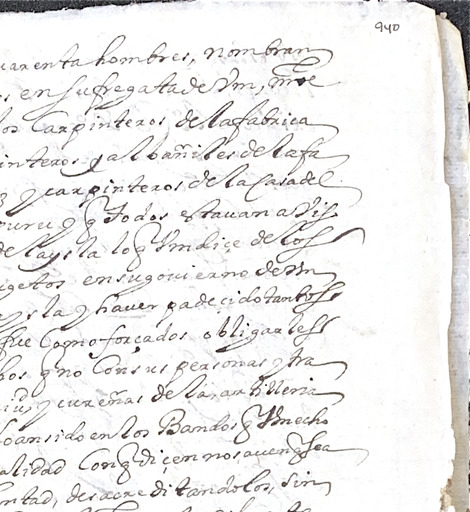 940
uarenta hombres, nombran
os en su fregata de Vm,
los Carpinteros de la fabrica
interos y albañiles de la fa
y carpinteros de la Casa del
y q todos estavan a
de la ysla lo q Vm dize de los
ugetos en su govierno de Vm
ysla y haver padecido tantos
fue Como forcados obligarles
bos q no Con sus personas y tra
y cureñas de la artilleria
o an sido en los Bandos q Vm echo
alidad Con q dicen nos
ntad, desacreditandolos, sin